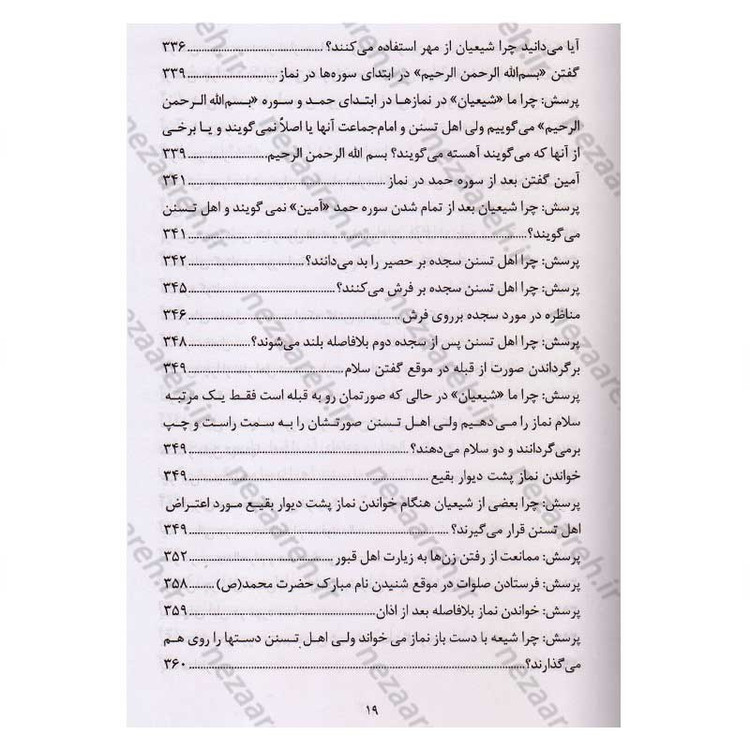 آیا می‌دانید چرا شیعیان از مهر استفاده می‌کنند؟ ............ ۳۳۶
گفتن «بسم‌الله الرحمن الرحیم» در ابتدای سوره‌ها در نماز ............ ۳۳۹
پرسش: چرا ما «شیعیان» در نمازها در ابتدای حمد و سوره «بسم‌الله الرحمن
الرحیم» می‌گوییم ولی اهل تسنن و امام‌جماعت آنها یا اصلاً نمی‌گویند و یا برخی
از آنها که می‌گویند آهسته می‌گویند؟ بسم الله الرحمن الرحیم ............ ۳۳۹
آمین گفتن بعد از سوره حمد در نماز ............ ۳۴۱
پرسش: چرا شیعیان بعد از تمام شدن سوره حمد «آمین» نمی گویند و اهل تسنن
می‌گویند؟ ............ ۳۴۱
پرسش: چرا اهل تسنن سجده بر حصیر را بد می‌دانند؟ ............ ۳۴۲
پرسش: چرا اهل تسنن سجده بر فرش می‌کنند؟ ............ ۳۴۵
مناظره در مورد سجده برروی فرش ............ ۳۴۶
پرسش: چرا اهل تسنن پس از سجده دوم بلافاصله بلند می‌شوند؟ ............ ۳۴۸
برگرداندن صورت از قبله در موقع گفتن سلام ............ ۳۴۹
پرسش: چرا ما «شیعیان» در حالی که صورتمان رو به قبله است فقط یک مرتبه
سلام نماز را می‌دهیم ولی اهل تسنن صورتشان را به سمت راست و چپ
برمی‌گردانند و دو سلام می‌دهند؟ ............ ۳۴۹
خواندن نماز پشت دیوار بقیع ............ ۳۴۹
پرسش: چرا بعضی از شیعیان هنگام خواندن نماز پشت دیوار بقیع مورد اعتراض
اهل تسنن قرار می‌گیرند؟ ............ ۳۴۹
پرسش: ممانعت از رفتن زن‌ها به زیارت اهل قبور ............ ۳۵۲
پرسش: فرستادن صلوات در موقع شنیدن نام مبارک حضرت محمد(ص) ............ ۳۵۸
پرسش: خواندن نماز بلافاصله بعد از اذان ............ ۳۵۹
پرسش: چرا شیعه با دست باز نماز می خواند ولی اهل تسنن دستها را روی هم
می‌گذارند؟ ............ ۳۶۰
۱۹
nezaareh.ir